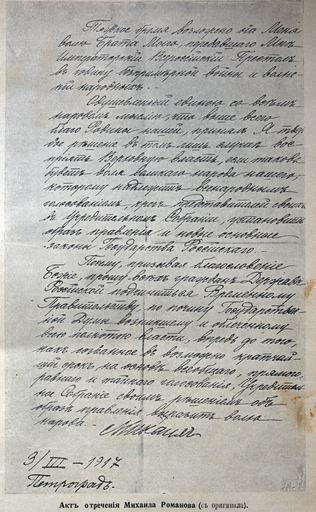 Тяжкое бремя возложено на Меня
волею Брата Моего передавшего Мне
Императорскій Всероссійскій Престолъ
въ годину безпримѣрной войны и волне-
ній народныхъ.
Одушевленный единою со всѣмъ
народомъ мыслію, что выше всего
благо Родины нашей, принялъ Я твер-
дое рѣшеніе въ томъ лишь случаѣ вос-
пріять Верховную власть, если такова
будетъ воля великаго народа нашего,
которому надлежитъ всенароднымъ
голосованіемъ, чрезъ представителей своихъ
въ Учредительномъ Собраніи, установить
образъ правленія и новые основные
законы Государства Россійскаго.
Посему, призывая благословеніе
Божіе, прошу всѣхъ гражданъ Державы
Россійской подчиниться Временному
Правительству, по почину Государствен-
ной Думы возникшему и облеченному
всею полнотою власти, впредь до того,
какъ созванное въ возможно кратчай-
шій срокъ на основѣ всеобщаго, прямого,
равнаго и тайнаго голосованія, Учредитель-
ное Собраніе своимъ рѣшеніемъ объ
образѣ правленія выразитъ волю
народа.
Михаилъ
3/III - 1917
Петроградъ.
Актъ отреченія Михаила Романова (съ оригинала).